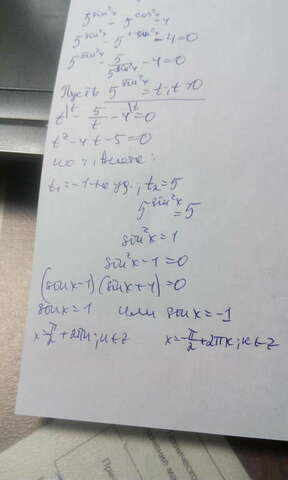 5^{sin²x} - 5^{cos²x} = 4
5^{sin²x} - 5^{1-sin²x} - 4 = 0
5^{sin²x} - 5/5^{sin²x} - 4 = 0
Пусть 5^{sin²x} = t, t > 0
t - 5/t - 4 = 0
t² - 4t - 5 = 0
по т. Виета:
t₁ = -1 - не уд., t₂ = 5
5^{sin²x} = 5
sin²x = 1
sin²x - 1 = 0
(sinx - 1)(sinx + 1) = 0
sinx = 1 или sinx = -1
x = π/2 + 2πк; к ∈ Z x = -π/2 + 2πк; к ∈ Z